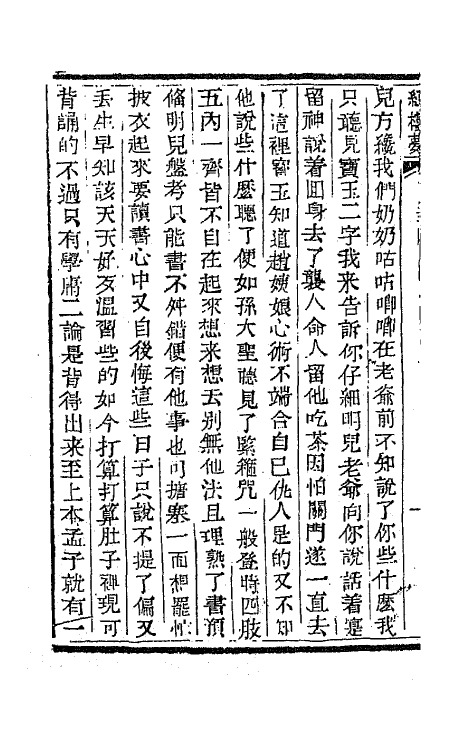 紅樓夢
兒方纔我們奶奶咕咕唧唧在老爺前不知說了你些什麼我
只聽見寶玉二字我来告訴你仔細明兒老爺向你說話着寔
留神說着囬身去了襲人命人留他吃茶因怕關門遂一直去
了這裡寳玉知道趙姨娘心術不端合自己仇人是的又不知
他說些什麼聽了便如孫大聖聽見了緊箍咒一般登時四肢
五内一齊皆不自在起來想来想去别無他法且理熟了書預
偹明兒盤考只能書不舛錯便有他事也可搪塞一面想罷忙
披衣起來要讀書心中又自後悔這些日子只說不提了偏又
丢生早知該天天好歹溫習些的如今打算打算肚子裡現可
背誦的不過只有學庸二論是背得出来至上本孟子就有一